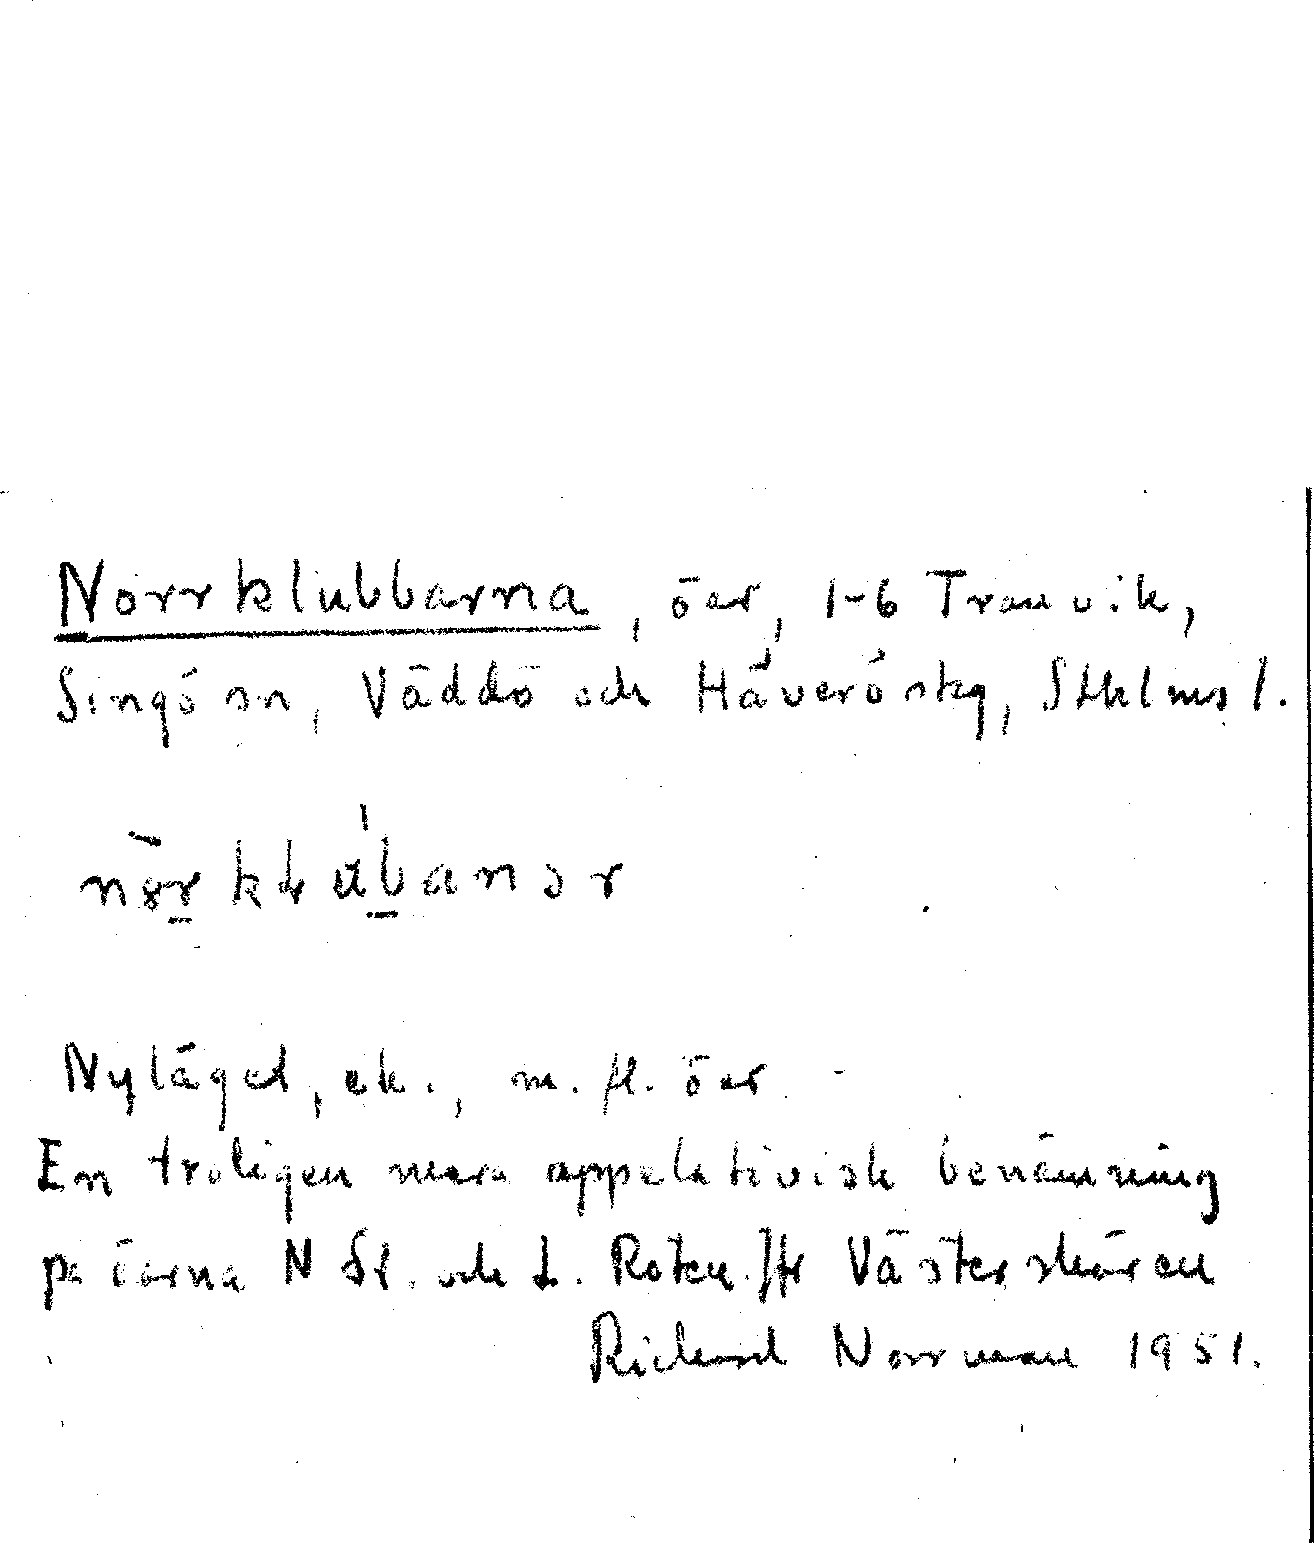 Norrklubbarna, öar, 1-6 Tranvik,
Singö sn, Väddö och Häverö skg, Sthlms l.
Nyläget, ek., m.fl. öar
En troligen mera appelativisk benämning
på öarna N St. och L. Roten. Jfr Västerskären
Richard Norrman 1951.